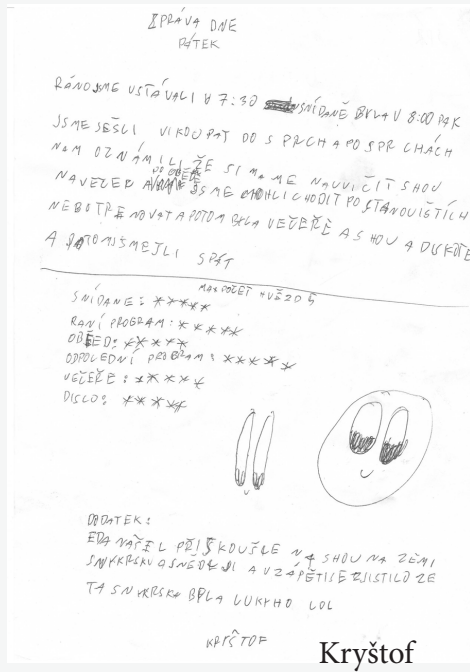 ZPRÁVA DNE
PÁTEK
RÁNO JSME VSTÁVALI V 7:30 SNÍDANĚ BYLA V 8:00 PAK
JSME SEŠLI VIKOUPAT DO SPRCH A PO SPRCHÁCH
NÁM OZNÁMILI ŽE SI MÁME NAUVIČIT SHOU
NAVEČER A PO OBĚDĚ JSME MOHLI CHODIT PO STANOVIŠTÍCH
NEBO TRÉNOVAT A POTOM BYLA VEČEŘE A SHOU A DISKOTÉ
A POTOM JSME JLI SPÁT
MAX POČET HVĚZD 5
SNÍDANĚ: *****
RANÍ PROGRAM: *****
OBĚD: *****
ODPOLEDNÍ PROGRAM: *****
VEČEŘE: *****
DISCO: *****
DODATEK:
EDA NAŠEL PŘI SKOUŠCE NA SHOU NA ZEMI
SNYKRSKU A SNĚDL JI A VZÁPĚTÍ SE ZJISTILO ŽE
TA SNYKRSKA BYLA LUKYHO LOL
KRYŠTOF
Kryštof